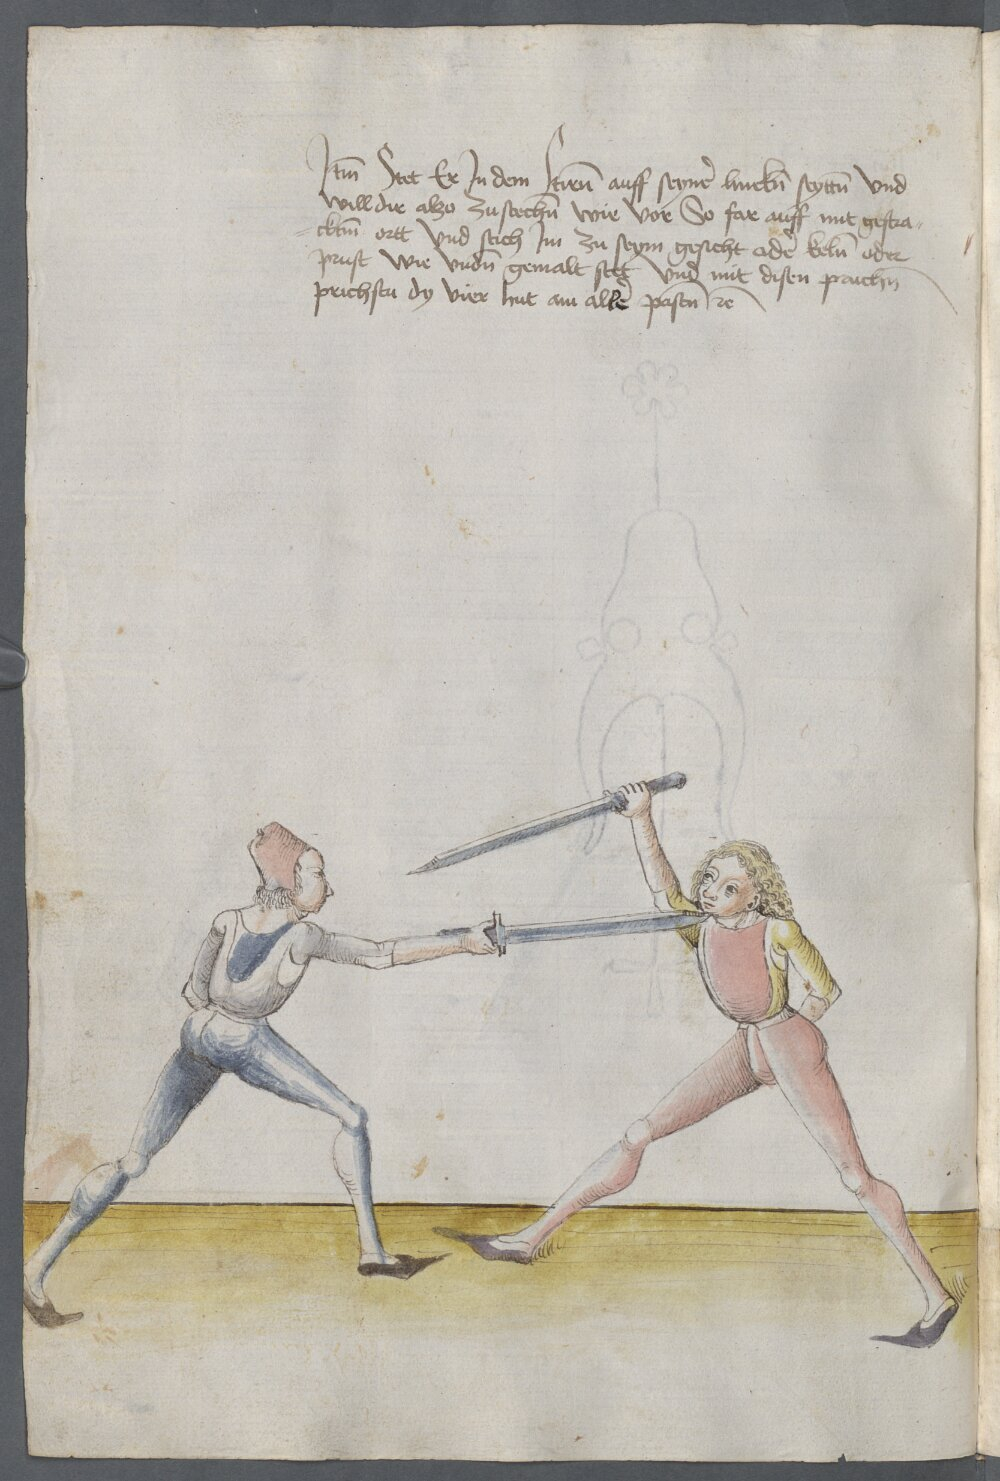 Itm̄ Stet Er In dem Stirn̄ auff seyne᷑ lincKn̄ seyttn̄ Vnd
will dir also Zu stechn̄ wie vor So far auff mit gestra-
-cktm̄ ortt Vnd stich Im zu seym gesicht ode᷑ keln̄ oder
prust wie Vndn̄ gemalt stet Vnd mit disen pruchn̄
prichstu dy vier hut am alle᷑ pastn̄ ꝛc